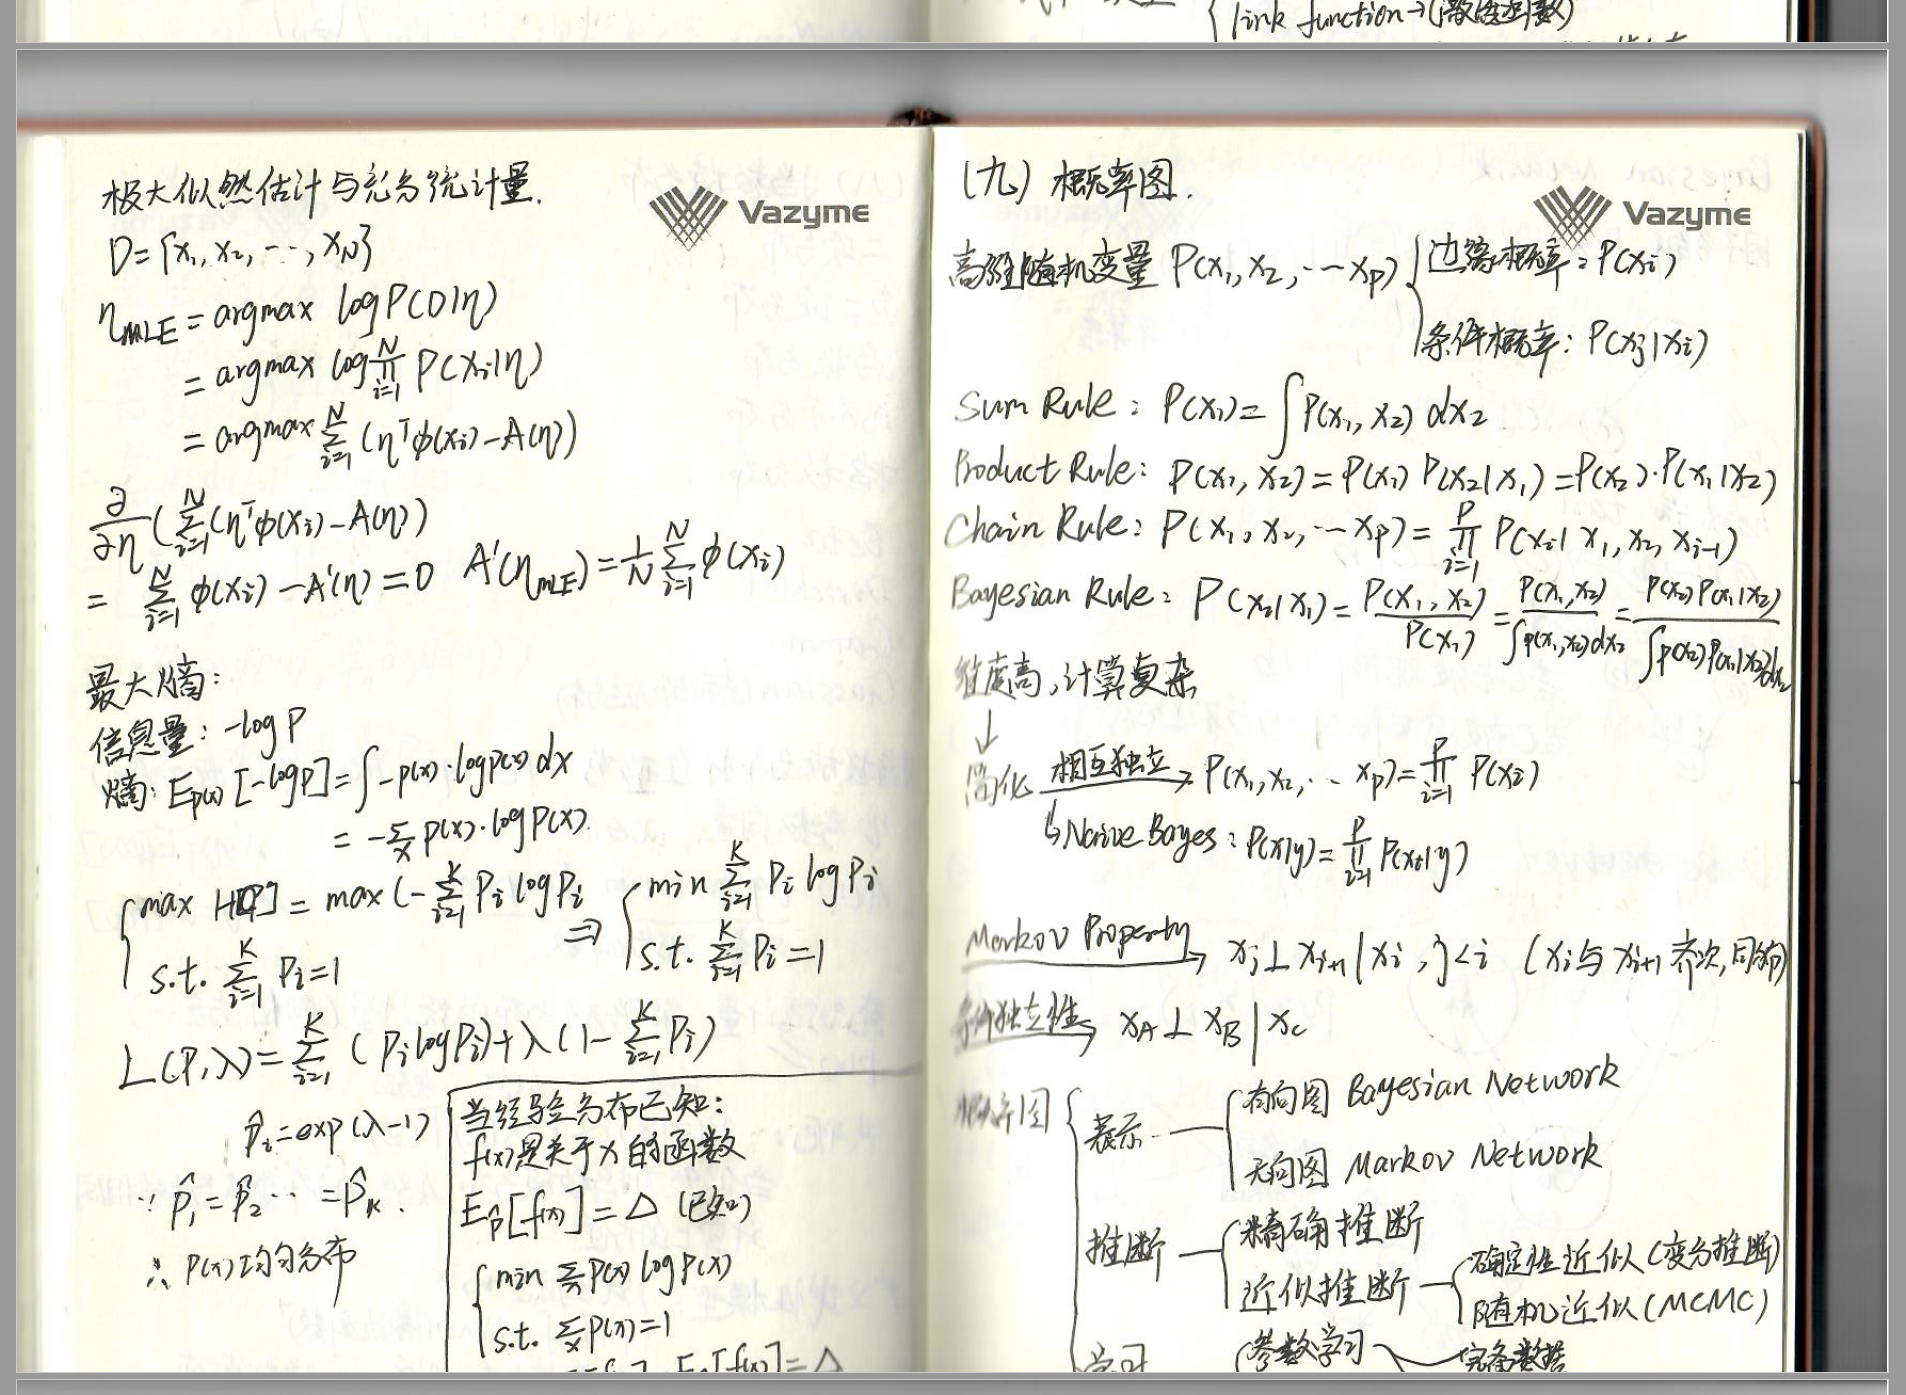 link function→(激活函数)
极大似然估计与充分统计量.
Vazyme
D={x₁, x₂, ..., x_N}
η_MLE = argmax log P(D|η)
= argmax log ∏_{i=1}^{N} P(x_i|η)
= argmax ∑_{i=1}^{N} (η^T φ(x_i) - A(η))
∂/∂η (∑_{i=1}^{N} (η^T φ(x_i) - A(η))
= ∑_{i=1}^{N} φ(x_i) - A'(η) = 0  A'(η_MLE) = 1/N ∑_{i=1}^{N} φ(x_i)
最大熵:
信息量: -log P
熵: E_{p(x)} [-log P] = ∫ -p(x)·log p(x) dx
= -∑_x p(x)·log p(x)
{ max H[P] = max (-∑_{i=1}^{K} P_i log P_i ⇒ { min ∑_{i=1}^{K} P_i log P_i
s.t. ∑_{i=1}^{K} P_i = 1  s.t. ∑_{i=1}^{K} P_i = 1
L(P, λ) = ∑_{i=1}^{K} (P_i log P_i) + λ(1 - ∑_{i=1}^{K} P_i)
p̂_i = exp(λ-1)
∵ p̂₁ = p̂₂ ... = p̂_K.
∴ P(x)均匀分布
当经验分布已知:
f(x)是关于x的函数
E_p̂[f(x)] = Δ (已知)
{ min ∑_x P(x) log P(x)
s.t. ∑_x P(x) = 1
(九) 概率图.
Vazyme
高维随机变量 P(x₁, x₂, ... x_p) { 边缘概率: P(x_i)
条件概率: P(x_j|x_i)
Sum Rule: P(x₁) = ∫ P(x₁, x₂) dx₂
Product Rule: P(x₁, x₂) = P(x₁) P(x₂|x₁) = P(x₂)·P(x₁|x₂)
Chain Rule: P(x₁, x₂, ... x_p) = ∏_{i=1}^{P} P(x_i| x₁, x₂, x_{i-1})
Bayesian Rule: P(x₂|x₁) = P(x₁, x₂)/P(x₁) = P(x₁, x₂)/∫p(x₁, x₂)dx₂ = P(x₂)P(x₁|x₂)/∫p(x₂)P(x₁|x₂)dx₂
维度高, 计算复杂
↓
简化 相互独立 → P(x₁, x₂, ... x_p) = ∏_{i=1}^{P} P(x_i)
↳ Naive Bayes: P(x|y) = ∏_{i=1}^{P} P(x_i|y)
Markov Property → x_j ⊥ x_{i+1} | x_i, j<i (x_i与x_{i+1}齐次,同分布)
条件独立性 → x_A ⊥ x_B | x_C
概率图 { 表示 — { 有向图 Bayesian Network
无向图 Markov Network
推断 — { 精确推断
近似推断 — { 确定性近似(变分推断)
随机近似(MCMC)
学习 { 参数学习 完备数据